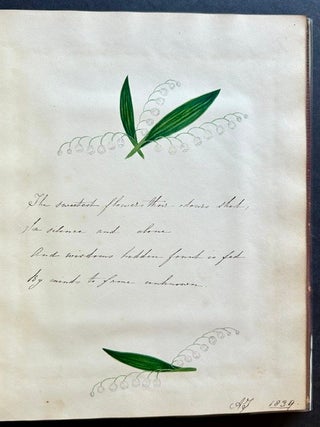 The sweetest flowers their odours shed,
In silence and alone
And wisdoms hidden fount is fed
By minds to fame unknown.
AJ 1839.